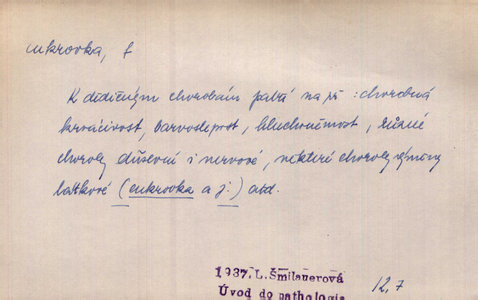 cukrovka, f
K dědičným chorobám patří na př.: chorobná
krvácivost, barvoslepost, hluchoněmost, různé
choroby duševní i nervové, některé choroby výměny
látkové (cukrovka a j.) atd.
1937. L. Šmilauerová
Úvod do pathologie
12,7